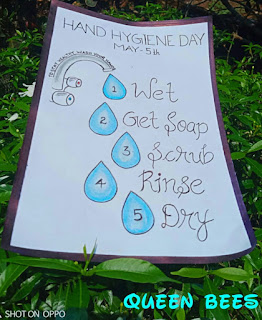 HAND HYGIENE DAY
MAY-5th
1 Wet
2 Get Soap
3 Scrub
4 Rinse
5 Dry
QUEEN BEES
SHOT ON OPPO